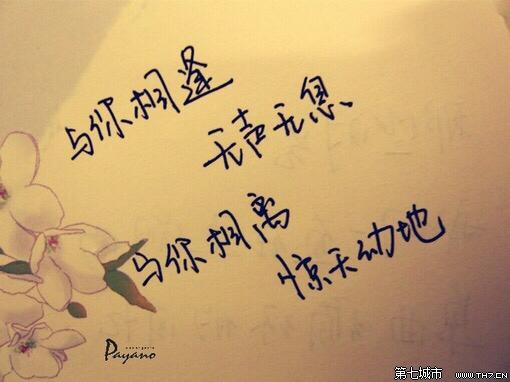 与你相逢
无声无息
与你相离
惊天动地
Payano
第七城市 WWW.TH7.CN